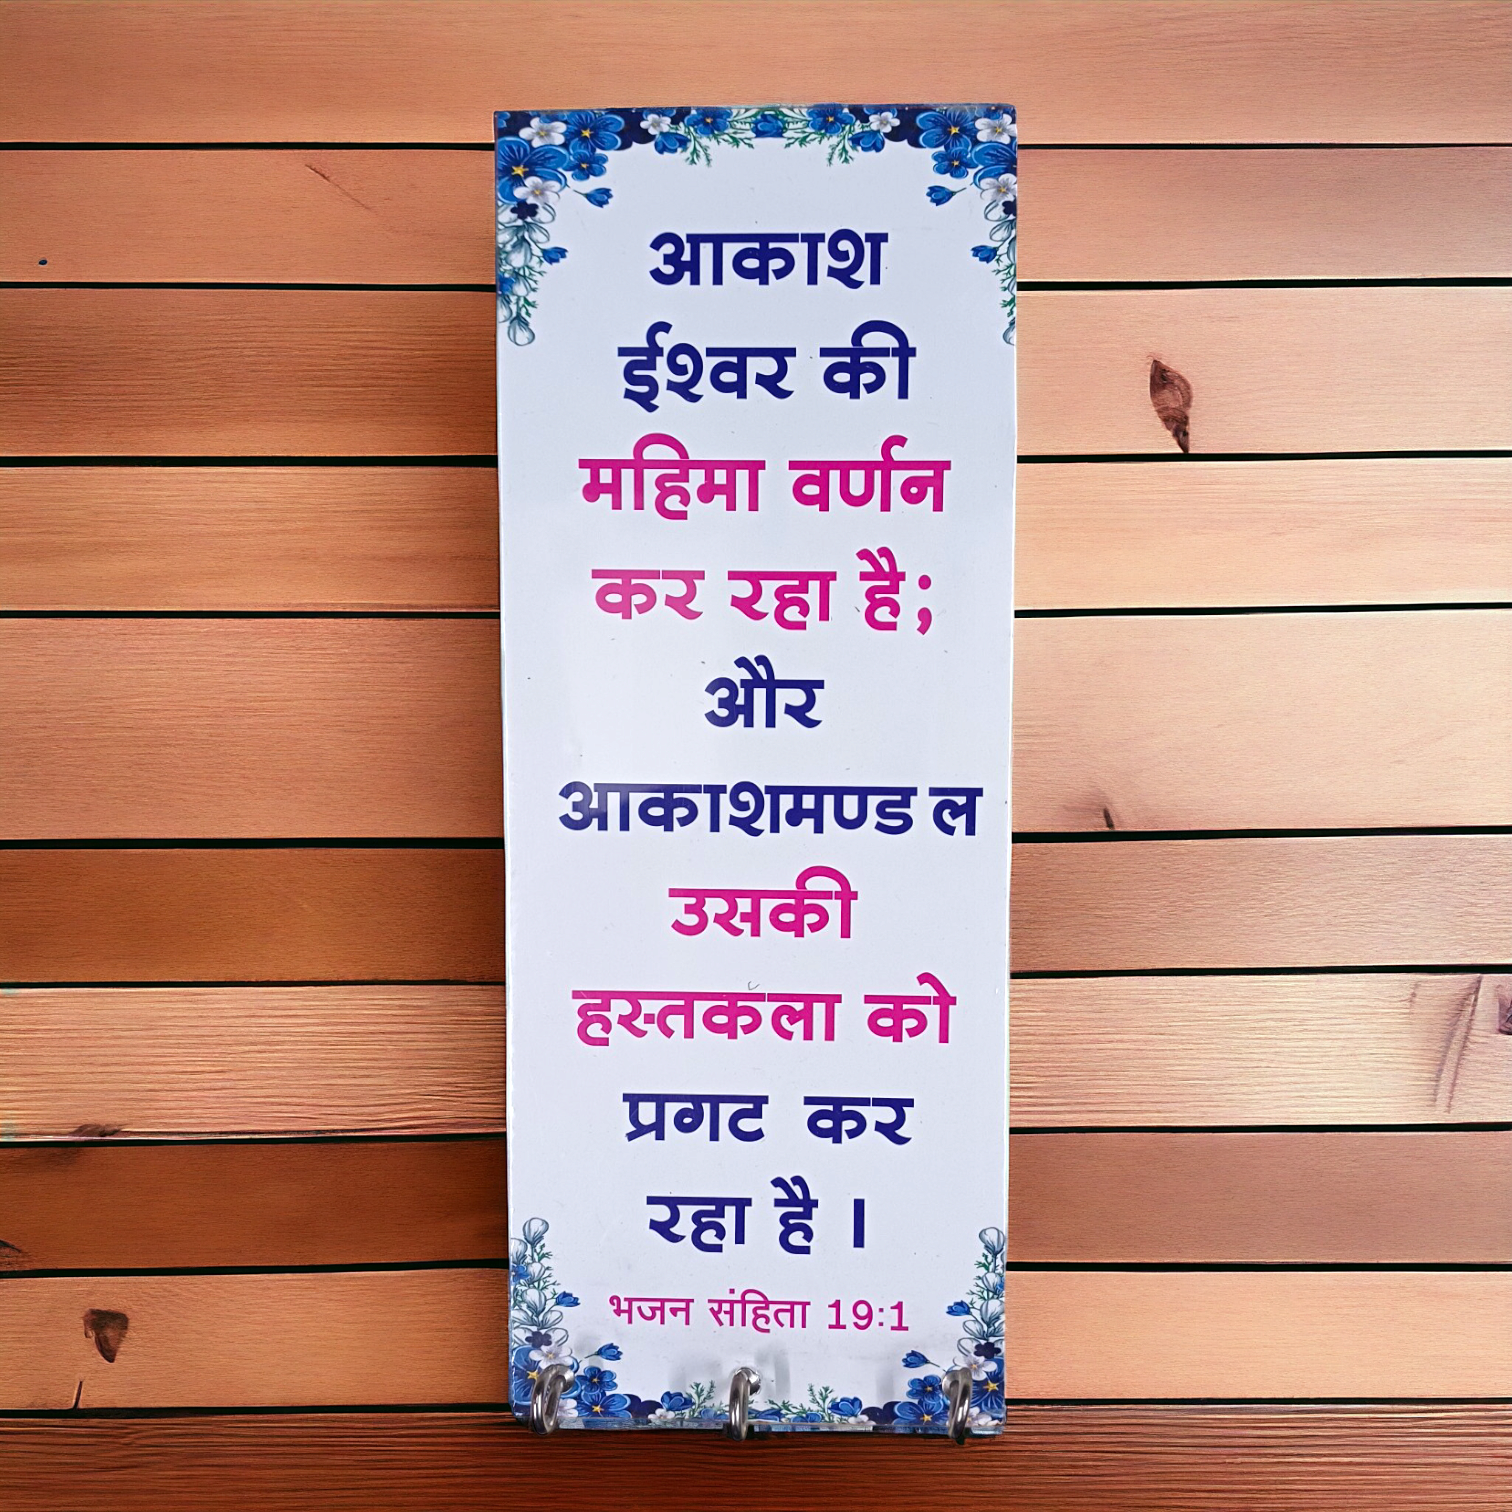 आकाश
ईश्वर की
महिमा वर्णन
कर रहा है;
और
आकाशमण्ड ल
उसकी
हस्तकला को
प्रगट कर
रहा है ।
भजन संहिता 19:1